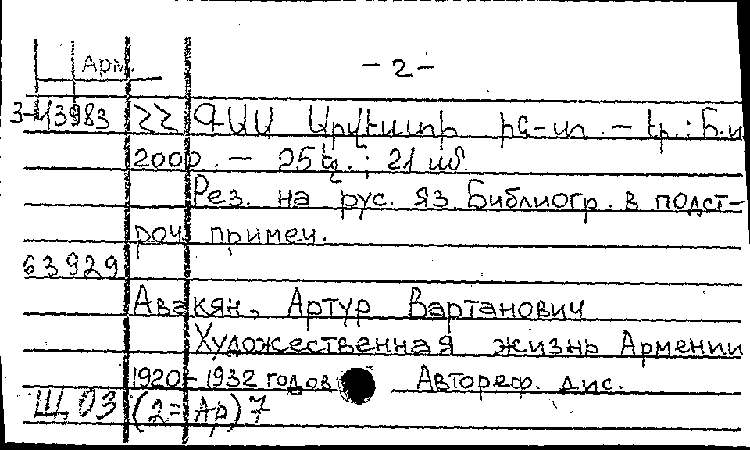 Арм. - 2 -
3-43983 ՀՀ ԳԱԱ Արվեստի ին-տ. – Եր.: Б.и
2000. – 25 էջ.; 21 սմ
Рез. на рус. яз Библиогр. в подст-
роч примеч.
63929
Авакян, Артур Вартанович
Художественная жизнь Армении
1920-1932 годов Автореф. дис.
Щ, 03 (2=Ар) 7